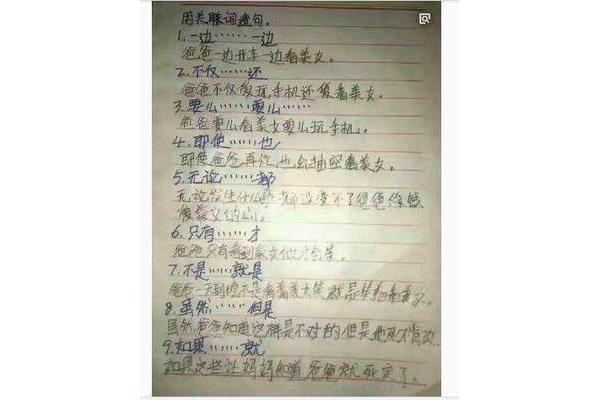 用关联词造句。
1.一边……一边
爸爸一边开车一边看美女。
2.不仅……还
爸爸不仅爱玩手机还爱看美女。
3.要么……要么……
爸爸要么看美女要么玩手机。
4.即使……也
即使爸爸再忙,也会抽空看美女。
5.无论……都
无论发生什么事都改变不了爸爸
爱美女的心。
6.只有……才
爸爸只有看到美女他才会笑。
7.不是……就是
爸爸一天到晚不是看美女就是
8.虽然……但是
虽然爸爸知道这样是不对的但是他死不肯改
9.如果……就
如果这些让妈妈知道爸爸就死定了。